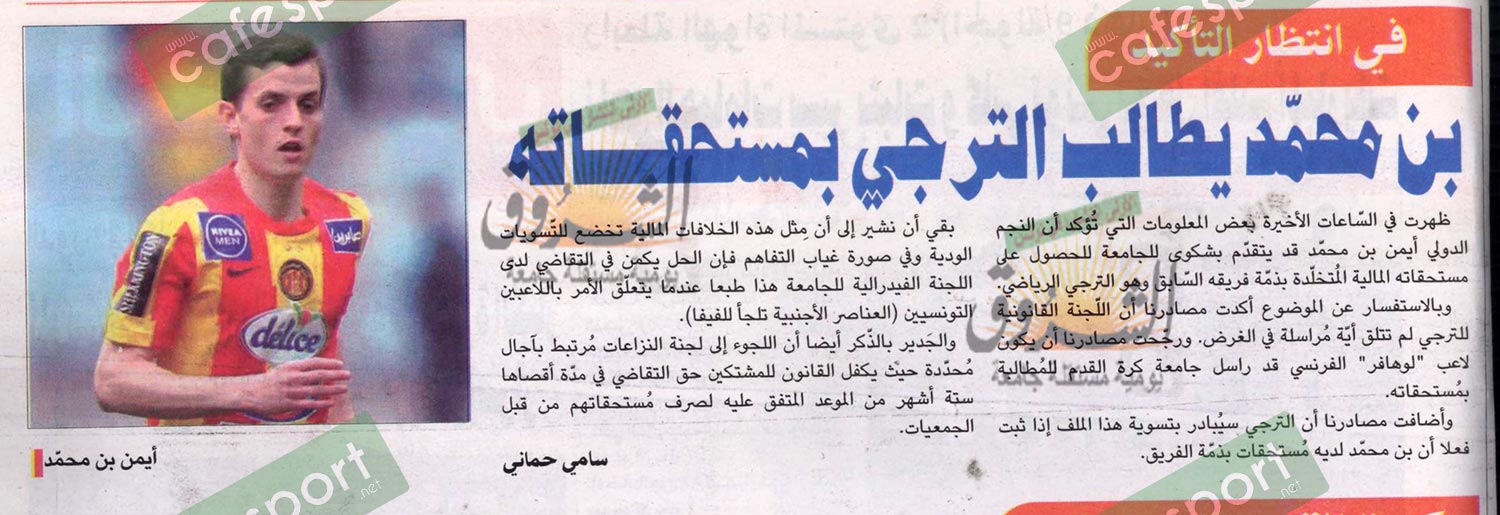 في انتظار التأكيد
بن محمّد يطالب الترجي بمستحقاته
ظهرت في السّاعات الأخيرة بعض المعلومات التي تُؤكد أن النجم
الدولي أيمن بن محمّد قد يتقدّم بشكوى للجامعة للحصول على
مستحقاته المالية المُتخلّدة بذمّة فريقه السّابق وهو الترجي الرياضي.
وبالاستفسار عن الموضوع أكدت مصادرنا أن اللّجنة القانونية
للترجي لم تتلق أيّة مُراسلة في الغرض. ورجحت مصادرنا أن يكون
لاعب "لوهافر" الفرنسي قد راسل جامعة كرة القدم للمُطالبة
بمُستحقاته.
وأضافت مصادرنا أن الترجي سيُبادر بتسوية هذا الملف إذا ثبت
فعلا أن بن محمّد لديه مُستحقات بذمّة الفريق.
بقي أن نشير إلى أن مِثل هذه الخلافات المالية تخضع للتّسويات
الودية وفي صورة غياب التفاهم فإن الحل يكمن في التقاضي لدى
اللجنة الفيدرالية للجامعة هذا طبعا عندما يتعلّق الأمر باللاعبين
التونسيين (العناصر الأجنبية تلجأ للفيفا).
والجَدير بالذّكر أيضا أن اللجوء إلى لجنة النزاعات مُرتبط بآجال
مُحدّدة حيثُ يكفل القانون للمُشتكين حق التقاضي في مدّة أقصاها
ستة أشهر من الموعد المتفق عليه لصرف مُستحقاتهم من قبل
الجمعيات.
سامي حماني
أيمن بن محمّد
NIVEA
MEN
délice
صابرين
SHARKINGTON
الشروق
يومية مستقلة جامعة
الشروق
يومية مستقلة جامعة
www.cafesport
www.cafesport
cafesport.net
sport.net
sport.net